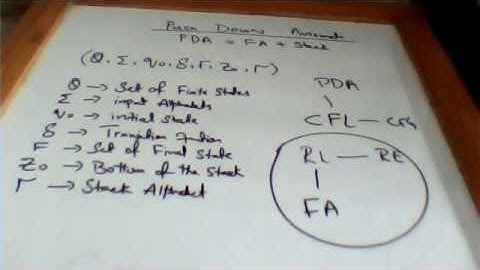 Push Down Automata
PDA = FA + Stack
(Q, Σ, q0, δ, F, Z0, Γ)
Q → Set of Finite States
Σ → input Alphabets
q0 → initial State
δ → Transition Function
F → Set of Final State
Z0 → Bottom of the Stack
Γ → Stack Alphabet
PDA
CFL — CFG
RL — RE
FA